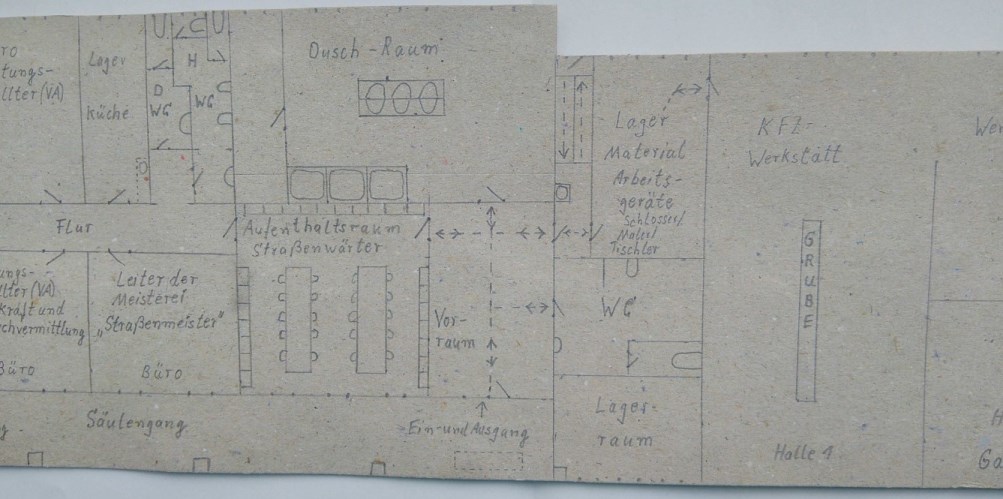 ro
tungs-
llter (VA)
Lager
Küche
H
D
WC
WC
Dusch-Raum
Lager
Material
Arbeits-
geräte
Schlosser/
Maler/
Tischler
KFZ-
Werkstatt
Flur
Aufenthaltsraum
Straßenwärter
ungs-
llter (VA)
kraft und
chvermittlung
Büro
Leiter der
Meisterei
„Straßenmeister"
Büro
Vor-
raum
WC
GRUBE
Lager-
raum
Säulengang
Ein- und Ausgang
Halle 1
Ga